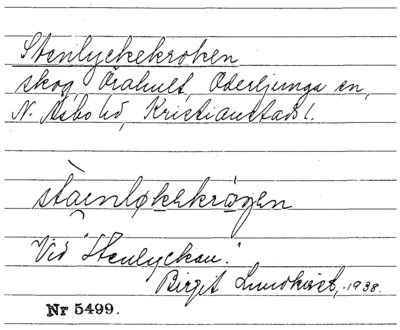 Stenlyckekroken
skog, Örahult, Oderljunga sn,
N. Åsbo hd, Kristianstads l.
stäenløkekrågen
Vid "Stenlyckan."
Birgit Lundkvist, 1938.
Nr 5499.